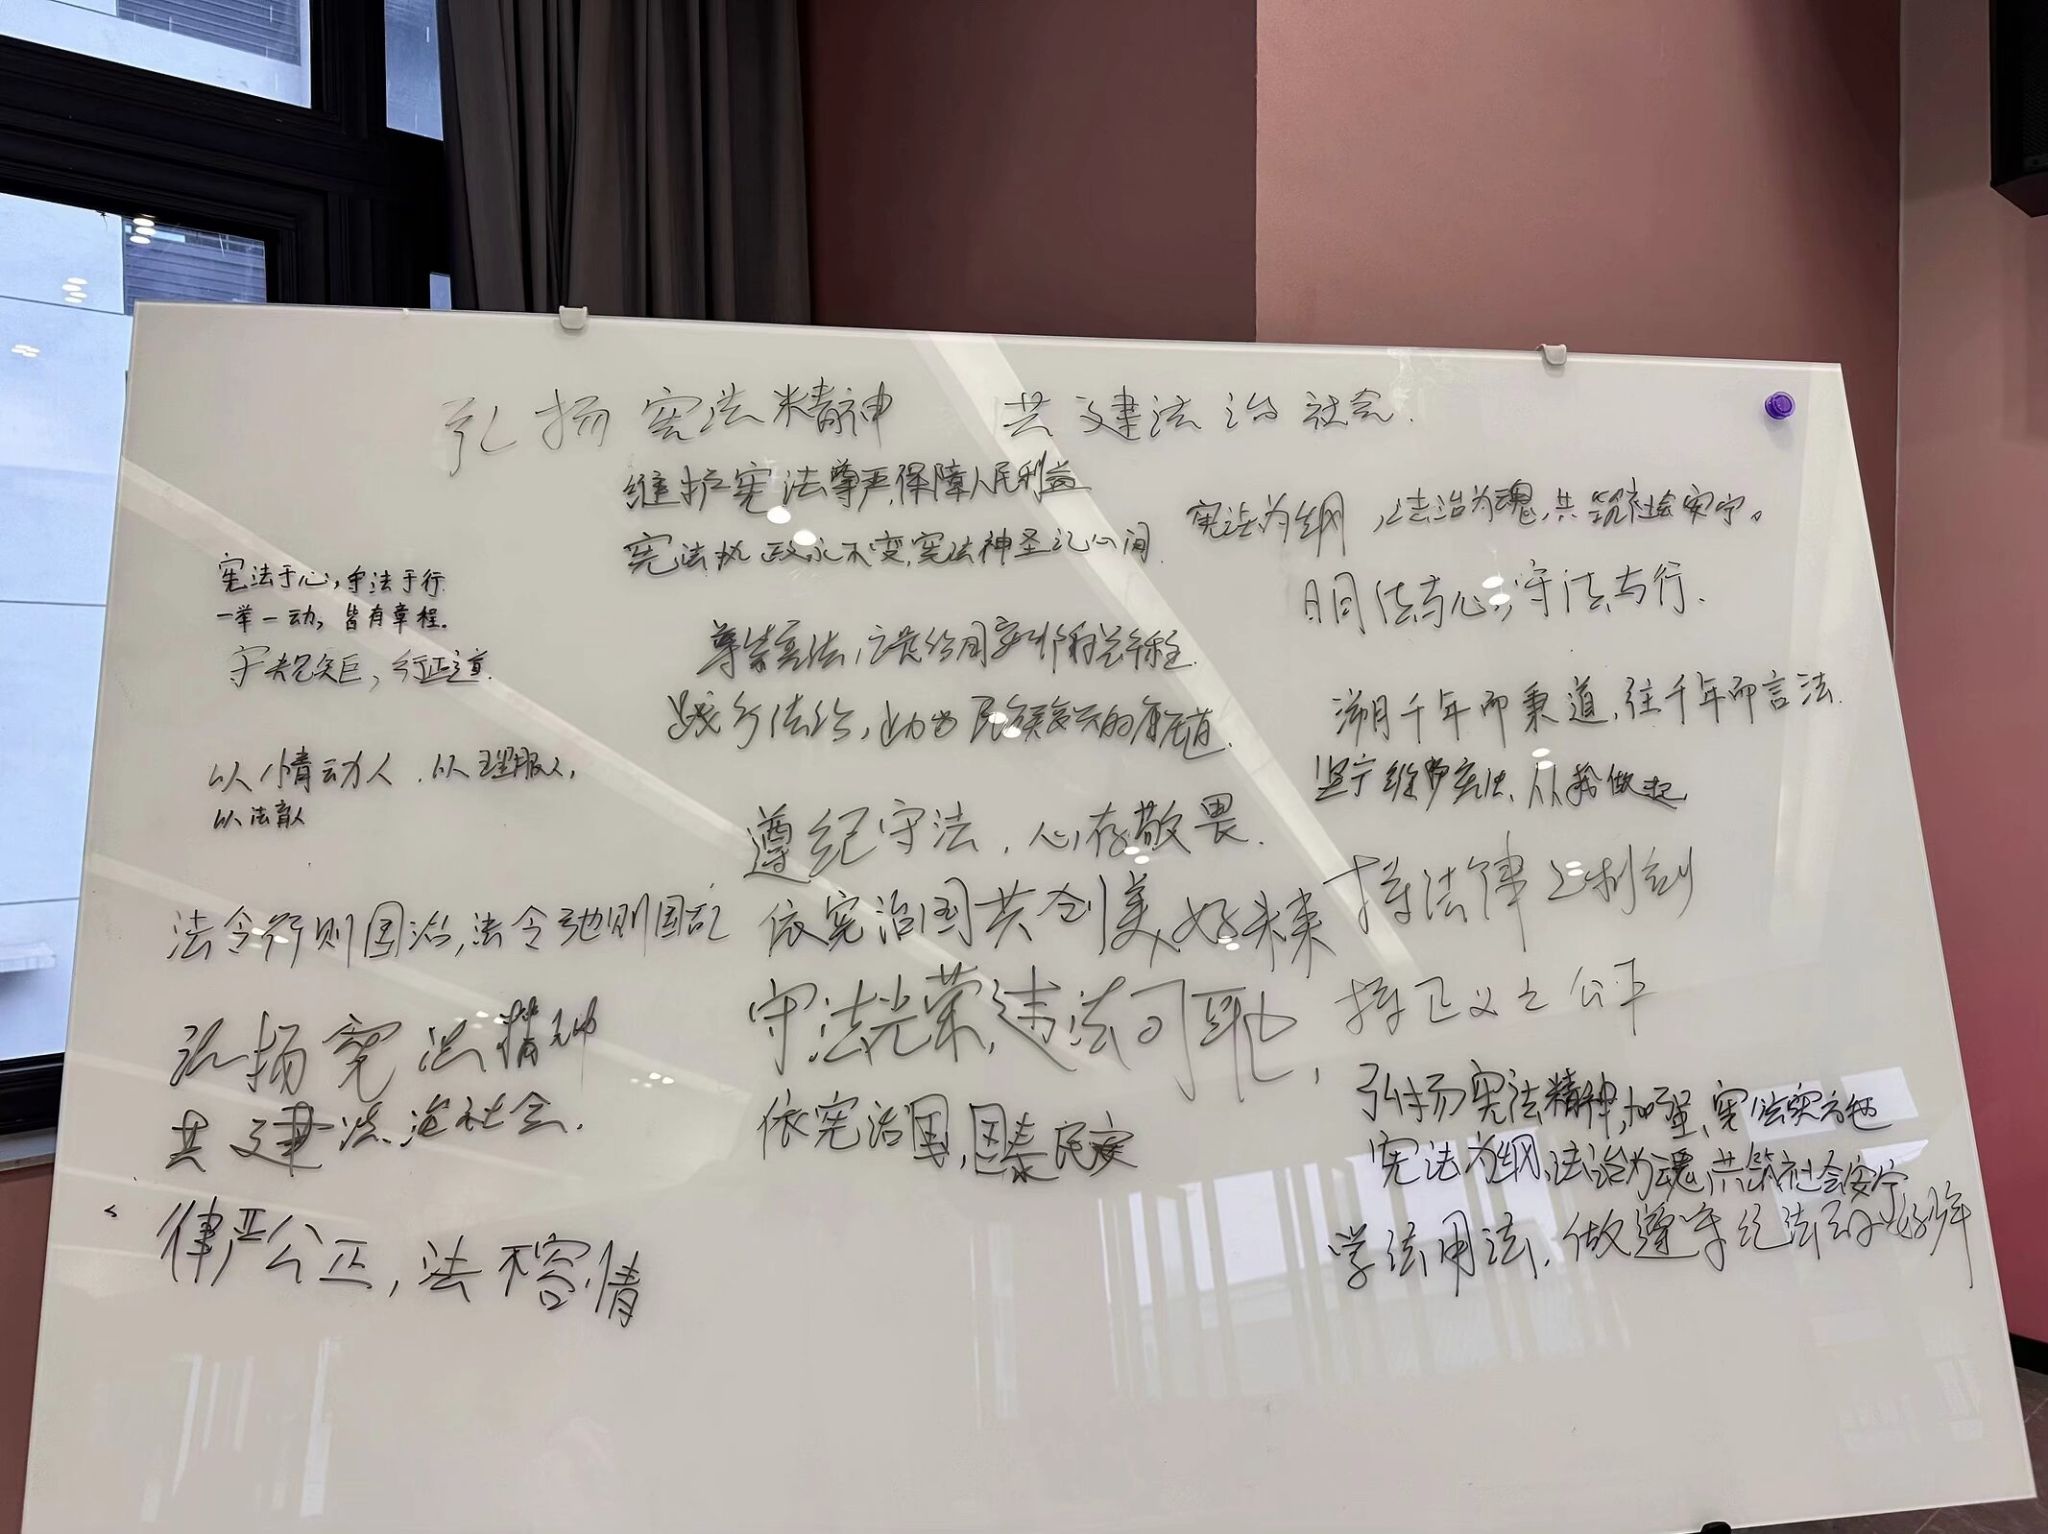 弘扬宪法精神 共建法治社会.
维护宪法尊严,保障人民利益
宪法执政永不变,宪法神圣记心间
宪法于心,守法于行
一举一动,皆有章程.
守规矩,行正道.
以情动人.以理服人,
以法育人
法令行则国治,法令弛则国乱
弘扬宪法精神
共建法治社会.
律严公正,法不容情
尊崇宪法,
践行法治,民族复兴的
遵纪守法.心存敬畏.
依宪治国共创美好未来
守法光荣,违法可耻,
依宪治国,国泰民安
宪法为纲,法治为魂,共筑社会安宁。
明法于心,守法于行.
溯千年而秉道,往千年而言法.
坚守维护宪法、从我做起
持法律之利剑
持正义之公平
弘扬宪法精神,加强宪法实施
宪法为纲,法治为魂,共筑社会安宁
学法用法,做遵守纪法的好少年